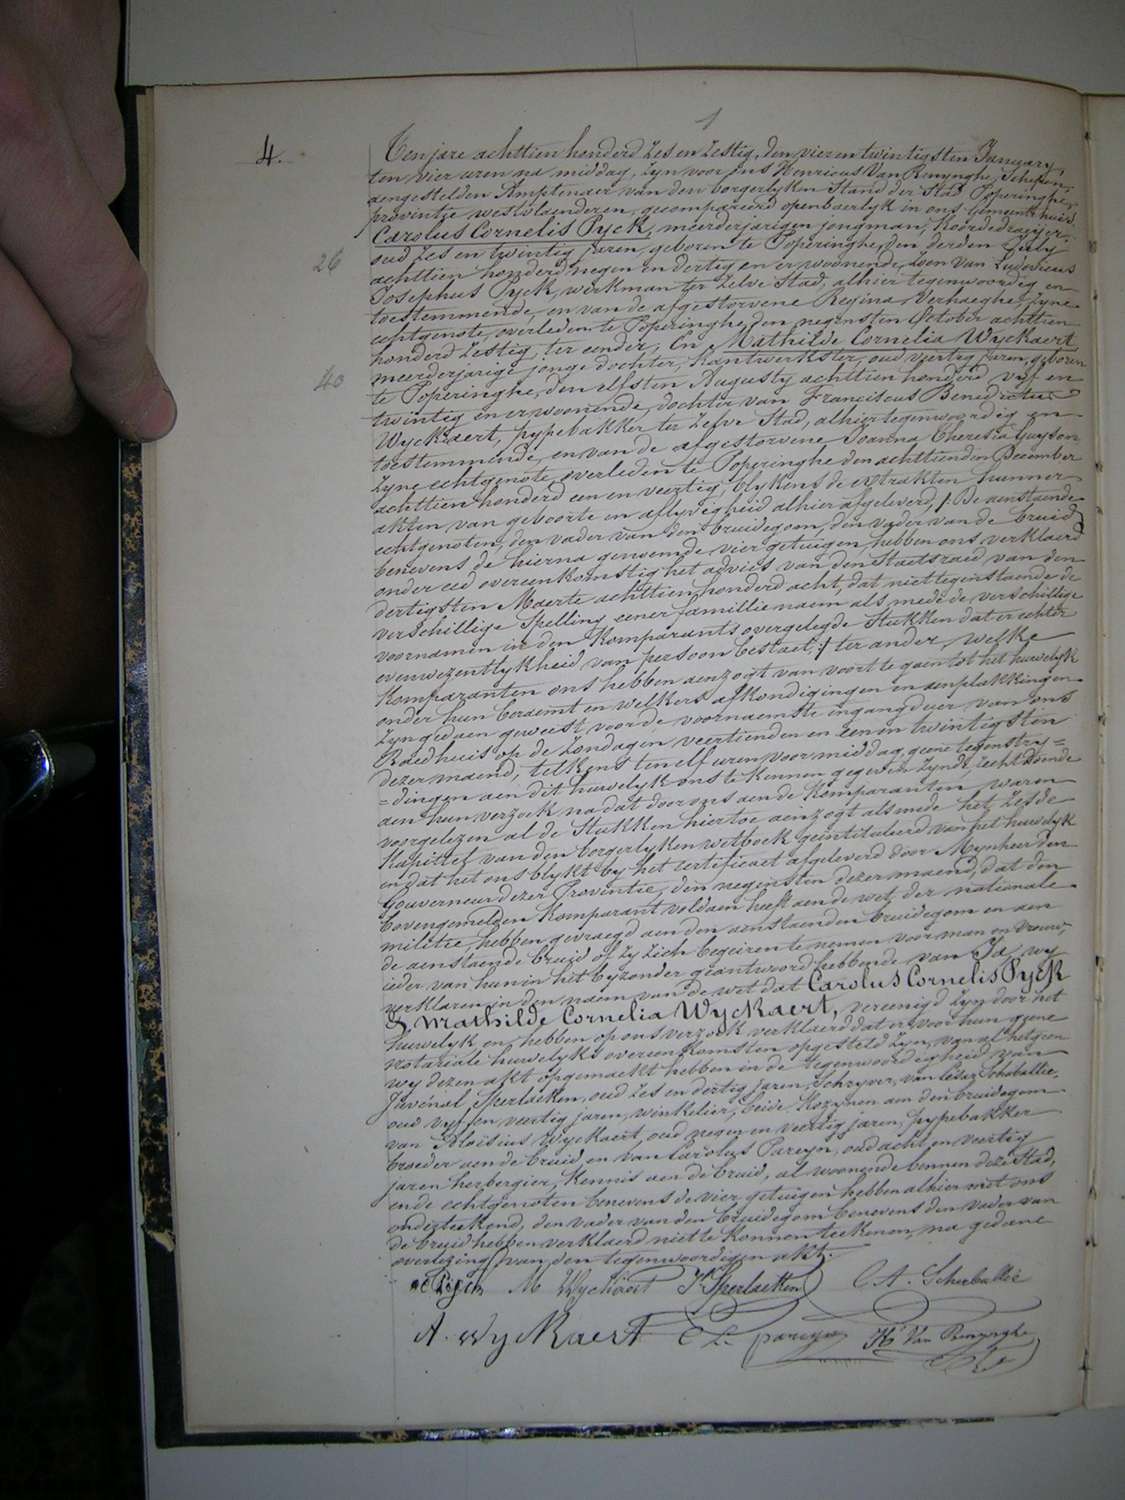 1
4.
Ten jare achttien honderd zes en zestig, den vier en twintigsten January,
ten vier uren na middag, zyn voor ons Henricus Van Bruynghe, Schepen,
aengestelden Amptenaer van den borgerlyken Stand der Stad Poperinghe,
provintje westvlaenderen, gecompareerd openbaerlyk in ons Gemeentehuis
Carolus Cornelis Pyck, meerderjarigen jongman, Koordedraeyer,
26 oud zes en twintig jaren, geboren te Poperinghe, den derden July
achttien honderd negen en dertig en er woonende, zoon van Ludovicus
Josephus Pyck, werkman ter zelve Stad, alhier tegenwoordig en
toestemmende, en van de afgestorvene Regina Verhaeghe, zyne
echtgenote, overleden te Poperinghe, den negensten October achttien
honderd zestig, ter eender, En Mathilde Cornelia Wyckaert
40 meerderjarige jonge dochter, Kantwerkster, oud veertig jaren, geboren
te Poperinghe, den elfsten Augusty achttien honderd vyf en
twintig en er woonende, dochter van Franciscus Benedictus
Wyckaert, pypebakker ter zelve Stad, alhier tegenwoordig en
toestemmende en van de afgestorvene Joanna Theresia
zyne echtgenote, overleden te Poperinghe den achttienden December
achttien honderd een en veertig, blykens de extrakten hunner
akten van geboorte en aflyvigheid alhier afgeleverd, /: De aenstaende
echtgenoten, den vader van den bruidegom, den vader van de bruid
benevens de hierna genoemde vier getuigen, hebben ons verklaerd
onder eed overeenkomstig het advies van den Staetsraed van den
dertigsten Maerte achttien honderd acht, dat niettegenstaende de
verschillige Spelling eener famillienaem als mede de verschillige
voornamen in den Komparants overgelegde Stukken dat er echter
evenwezentlykheid van persoon bestaet; :/ ter ander, welke
Komparanten ons hebben aenzogt van voort te gaen tot het huwelyk
onder hun beraemt en welkers afkondigingen en aenplakkingen
zyn gedaen geweest voor de voornaemste ingangdeur van ons
Raedhuis op de Zondagen veertienden en een en twintigsten
dezer maend, telkens ten elf uren voor middag, geene tegenstry=
=dingen aen dit huwelyk ons te kennen gegeven zynde, recht doende
aen hun verzoek na dat door ons aen de Komparanten waren
voorgelezen al de Stukken hiertoe aenzogt als mede het zesde
Kapittel van den borgerlyken wetboek geintituleerd van het huwelyk
en dat het ons blykt by het certificaet afgeleverd door Mynheer den
Gouverneur dezer Provintie, den negensten dezer maend, dat den
bovengemelden Komparant voldaen heeft aen de wet der nationale
militie, hebben gevraegd aen den aenstaenden bruidegom en aen
de aenstaende bruid of zy zich begeiren te nemen voor man en vrouw,
ieder van hun in het byzonder geantwoord hebbende van Ja, wy
verklaren in den naem van de wet dat Carolus Cornelis Pyck
& Mathilde Cornelia Wyckaert, vereenigd zyn door het
huwelyk en hebben op ons verzoek verklaerd dat er voor hun geene
notariale huwelyks overeenkomsten opgesteld zyn, van al hetgeen
wy dezen akt opgemaekt hebben in de tegenwoordigheid van
Juvénal Sperlaeken, oud zes en dertig jaren, Schryver, van César Schaballie,
oud vyf en veertig jaren, winkelier, beide Kozynen aen den bruidegom
van Aloisius Wyckaert, oud negen en veertig jaren, pypebakker
broeder aen de bruid en van Carolus Pareyn, oud acht en veertig
jaren herbergier, Kennis aen de bruid, al woonende binnen deze Stad,
ende echtgenoten benevens de vier getuigen hebben alhier met ons
onderteekend, den vader van den bruidegom benevens den vader van
de bruid hebben verklaerd niet te konnen teekenen, na gedane
overlezing van den tegenwoordigen akt.
M Wyckaert Jl Sperlaeken C A. Schaballie
A. Wyckaert C L pareyn Hs Van Bruynghe